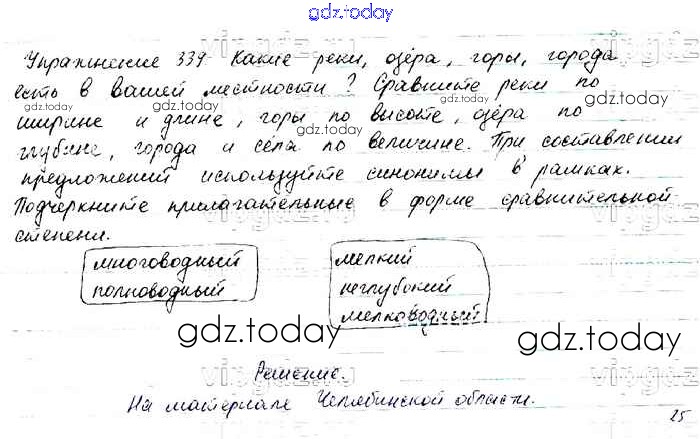 gdz.today
Упражнение 339 Какие реки, озёра, горы, города
есть в вашей местности? Сравните реки по
gdz.today gdz.today gdz.today
ширине и длине, горы по высоте, озёра по
глубине, города и сёла по величине. При составлении
предложений используйте синонимы в рамках.
Подчеркните прилагательные в форме сравнительной
степени.
многоводный
полноводный
мелкий
неглубокий
мелководный
gdz.today gdz.today
Решение.
На материале Челябинской области.
25